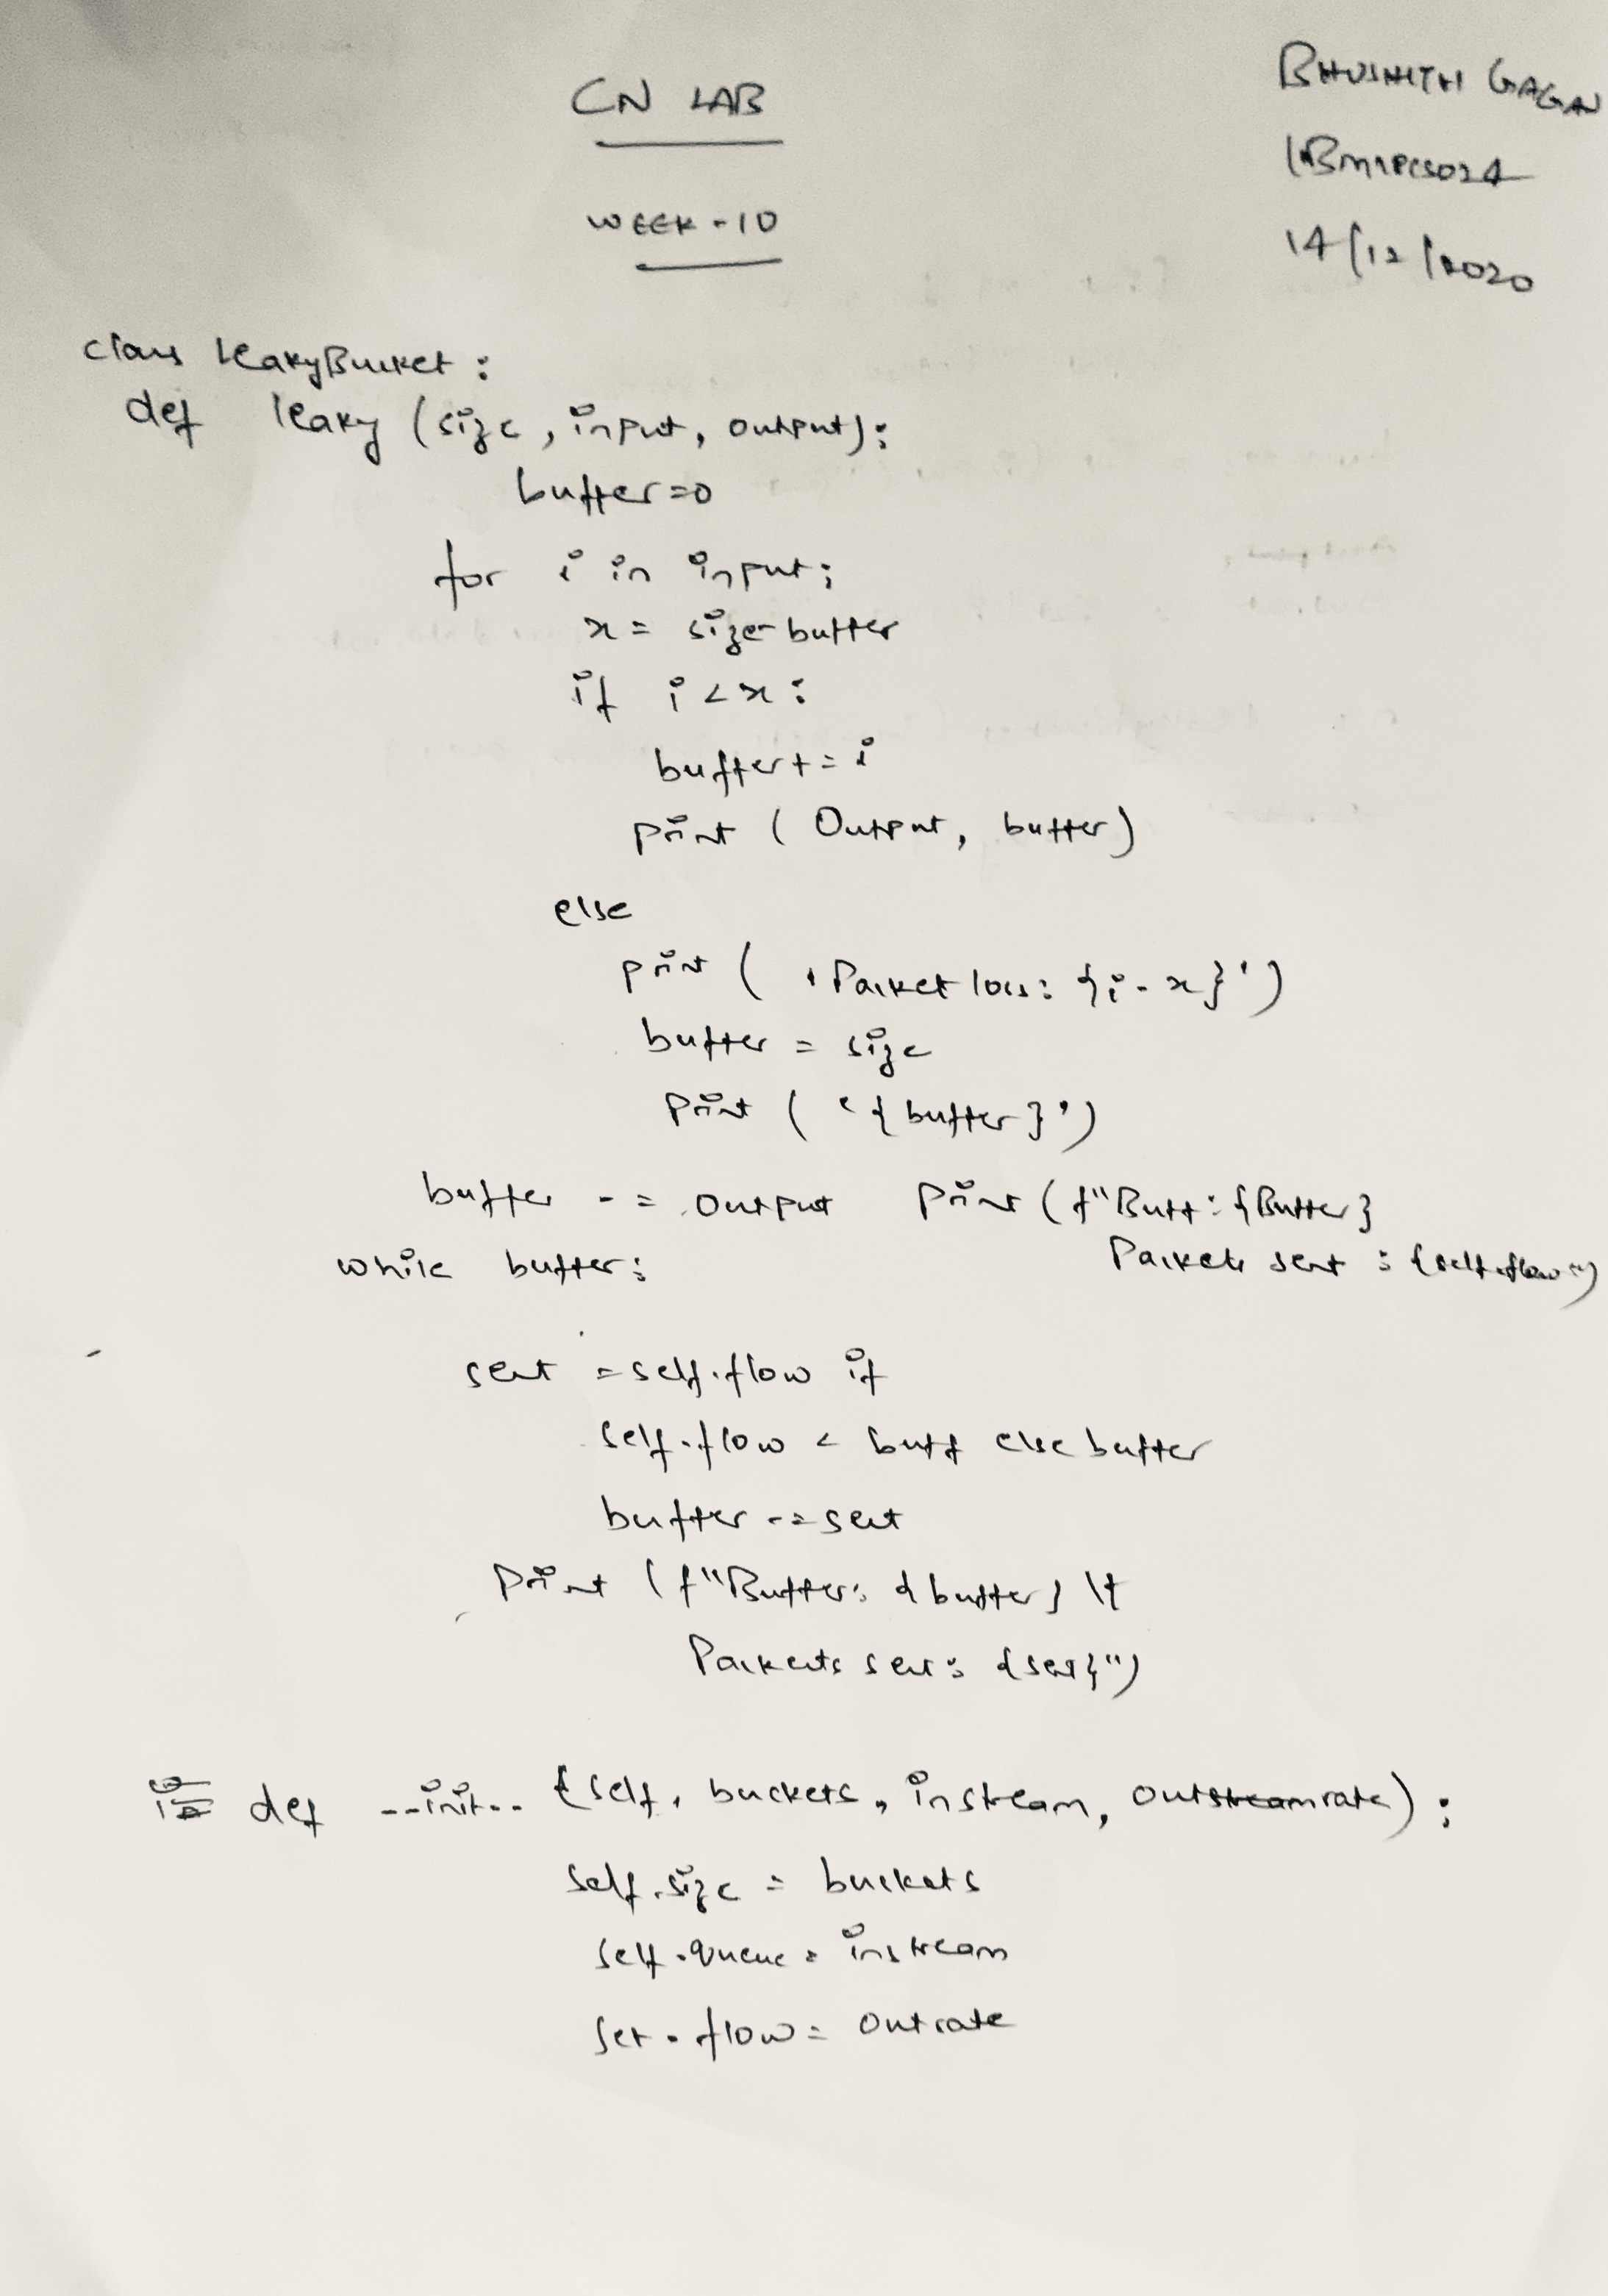 CN LAB
WEEK-10
BHUSHITH GAGAN
14/12/2020
class LeakyBucket:
def leaky (size, input, output):
buffer=0
for i in input:
x = size-buffer
if i<x:
buffer+=i
print (Output, buffer)
else
print ( 'Packet loss: {i-x}')
buffer = size
print ( '{buffer}')
buffer -= output print (f"Buff: {Buffer}
Packets sent : {self.flow")
while buffer:
sent = self.flow if
self.flow < buff else buffer
buffer -=sent
print (f"Buffer: {buffer} \t
Packets sent: {sent}")
def __init__ (self, buckets, instream, outrate):
self.size = buckets
self.queue = instream
set.flow = outrate